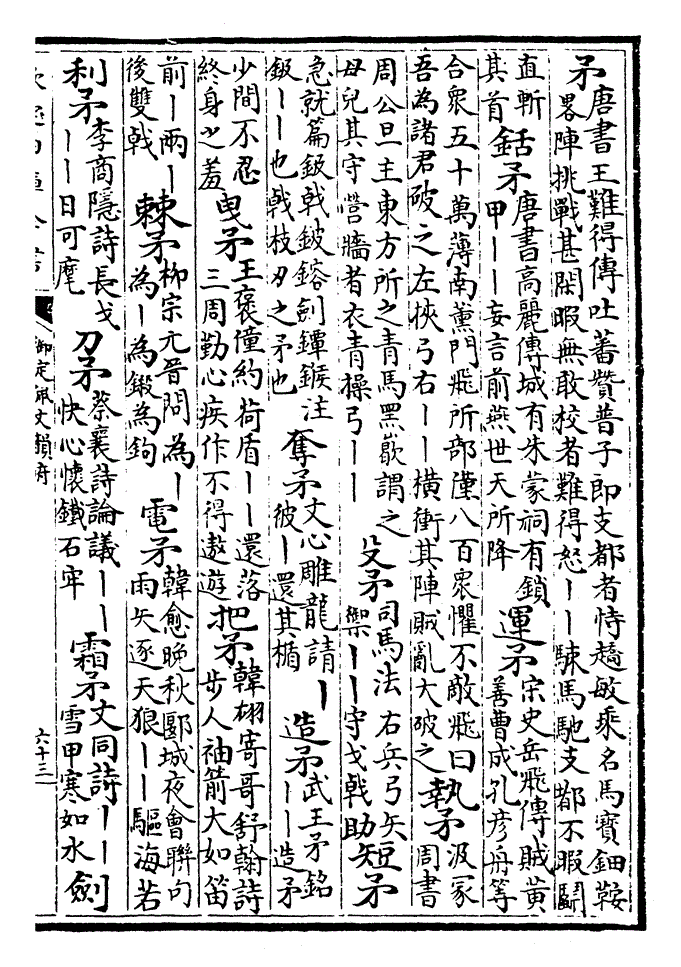 矛唐書王難得傳吐蕃贊普子郎支都者恃趫敏乘名馬寶鈿鞍畧陣挑戰甚閑暇無敢校者難得怒丨丨駷馬馳支都不暇鬭
直斬其首 銛矛唐書高麗傳城有朱蒙祠有鎖甲丨丨妄言前燕世天所降 運矛宋史岳飛傳賊黄善曹成孔彥舟等
合衆五十萬薄南薰門飛所部僅八百衆懼不敵飛曰吾為諸君破之左挾弓右丨丨橫衝其陣賊亂大破之 執矛汲冢周書
周公旦主東方所之青馬黑㱔謂之母兒其守營牆者衣青操弓丨丨 殳矛司馬法右兵弓矢禦丨丨守戈戟助 短矛
急就篇鈒戟鈹鎔劍鐔鍭注鈒丨丨也戟枝刃之矛也 奪矛文心雕龍請丨彼丨還其楯 造矛武王矛銘丨丨造矛
少間不忍終身之羞 曳矛王褒僮約荷盾丨丨還落三周勤心疾作不得遨遊 把矛韓翃寄哥舒翰詩步人袖箭大如笛
前丨兩丨後雙戟 棘矛柳宗元晉問為丨為丨為鍛為鉤 電矛韓愈晚秋郾城夜會聯句雨矢逐天狼丨丨驅海若
利矛李商隱詩長戈丨丨日可麾 刀矛蔡襄詩論議丨丨快心懷鐵石牢 霜矛文同詩丨丨雪甲寒如水 劍
御定佩文韻府
六十三